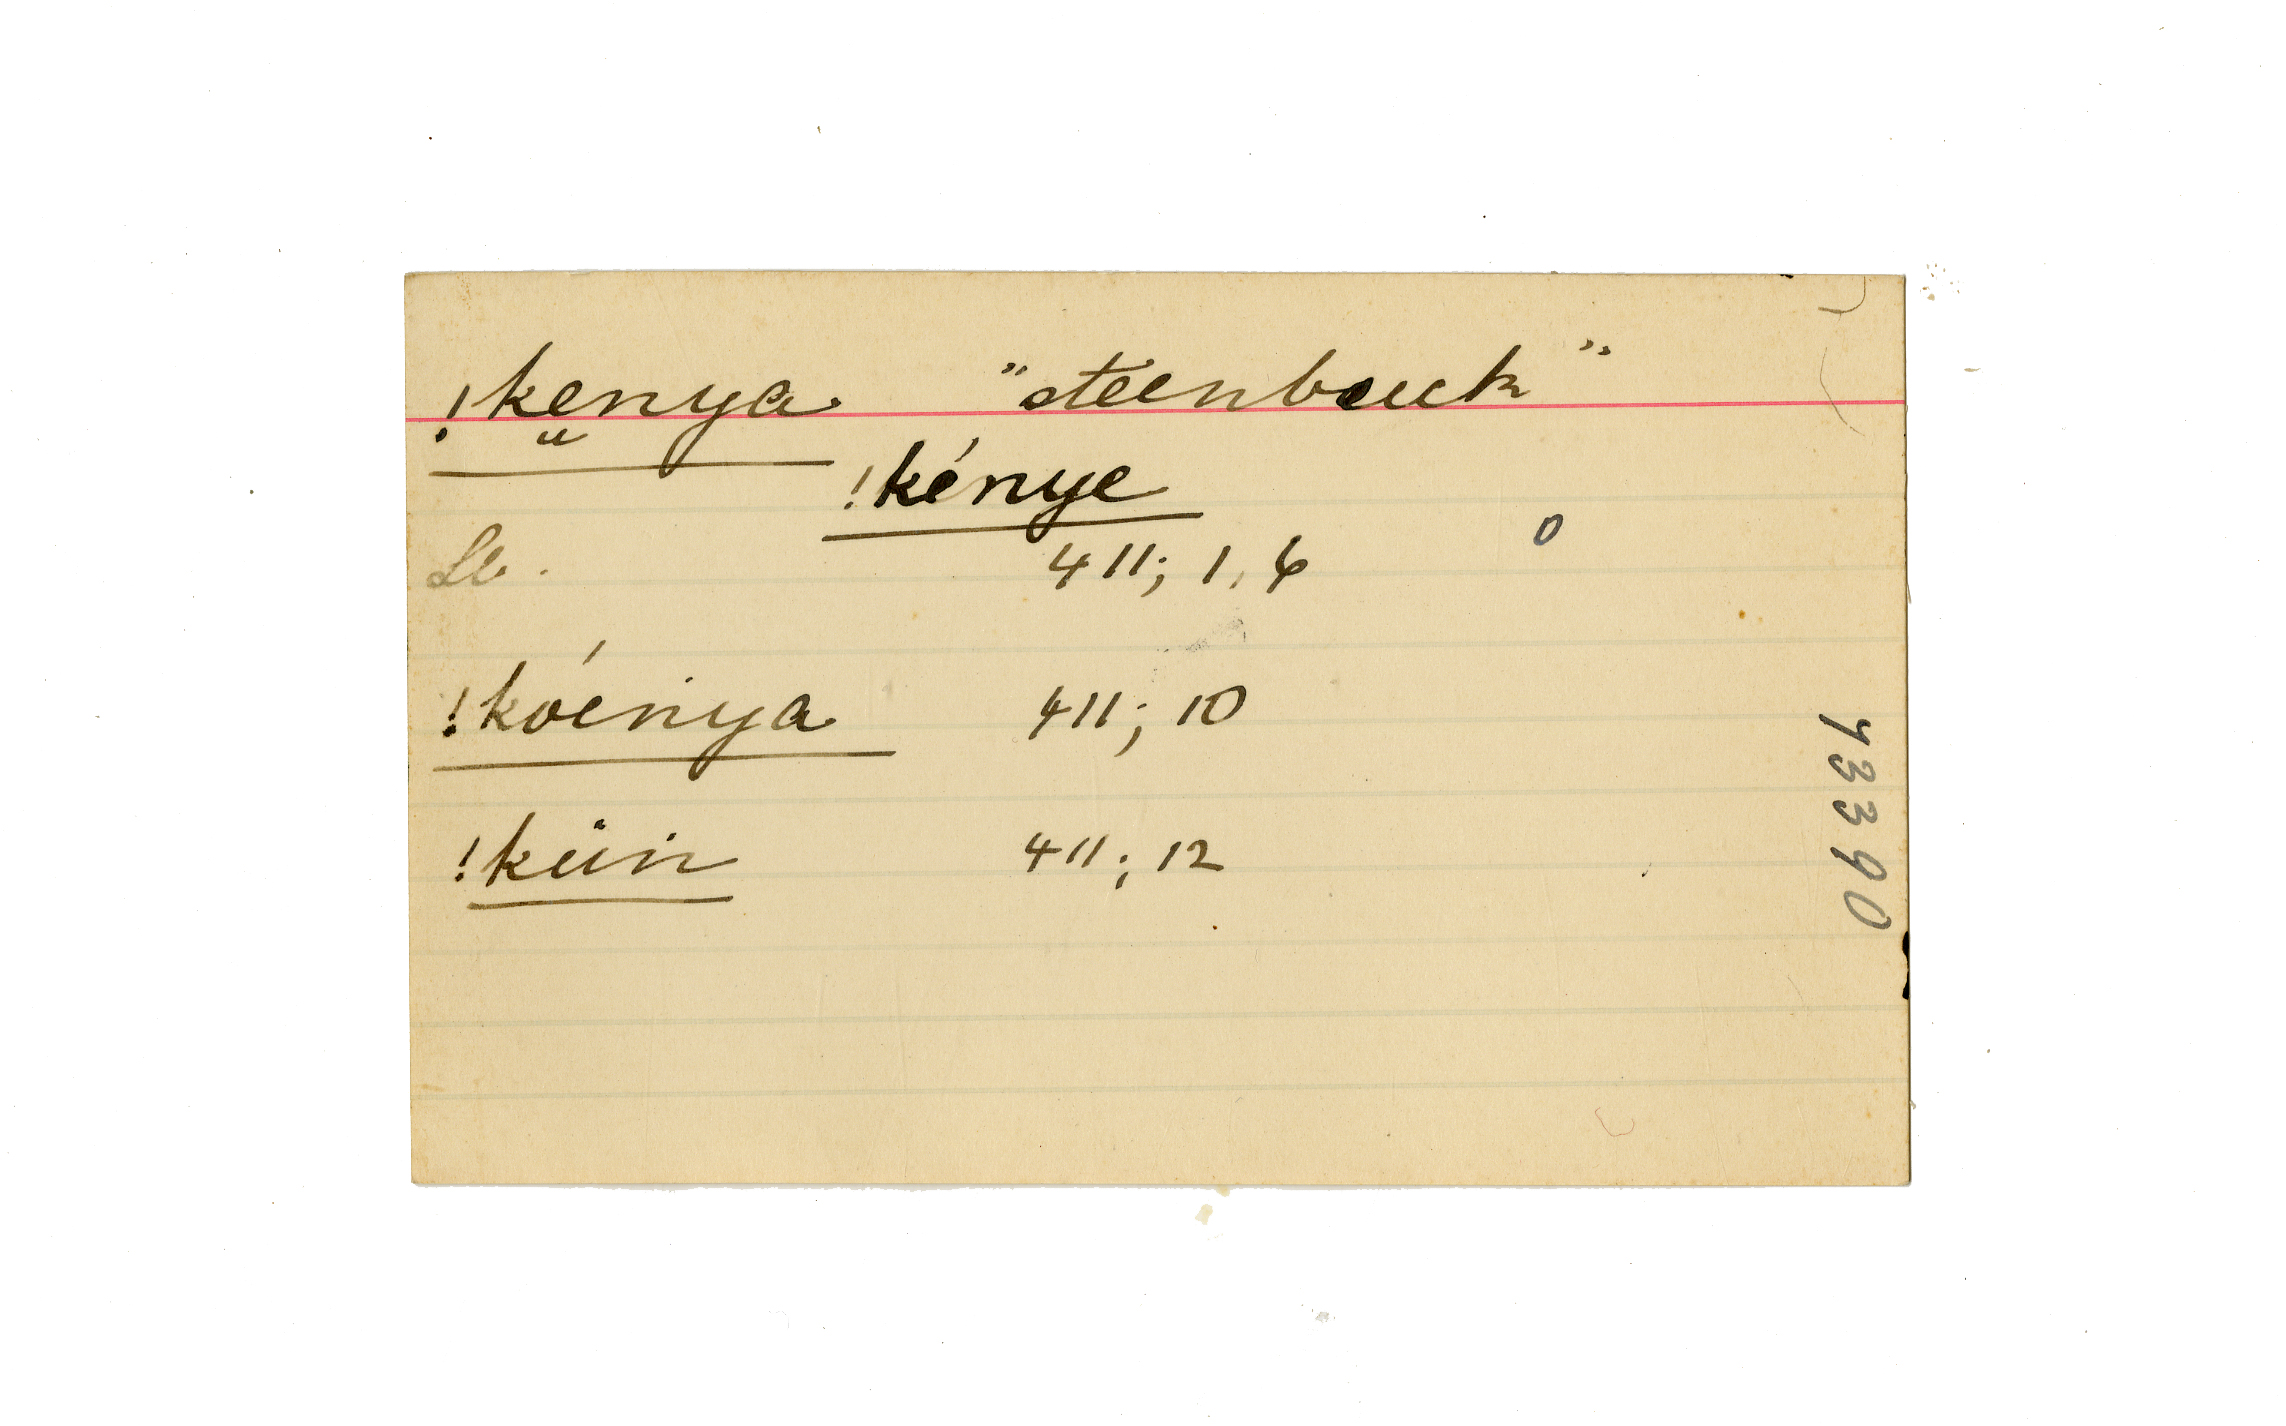 !kenya "steenbuck"
!kénye
Ll. 411; 1, 6 0
!kóenya 411; 10
!küin 411; 12
43390